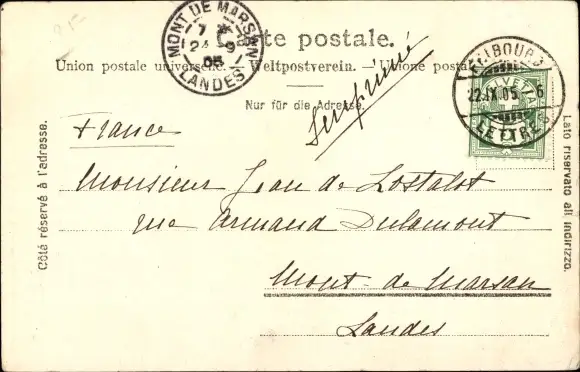 MONT DE MARSAN
7
24 9
05
LANDES
te postale.
Union postale universelle. Weltpostverein. Unione postale
Nur für die Adresse.
FRIBOURG
22.IX.05 6
LETTRES
HELVETIA
Côté réservé à l'adresse.
Lato riservato all indirizzo.
Imprimé
France
Monsieur Jean de Lostalot
rue Armand Dulamont
Mont-de-Marsan
Landes